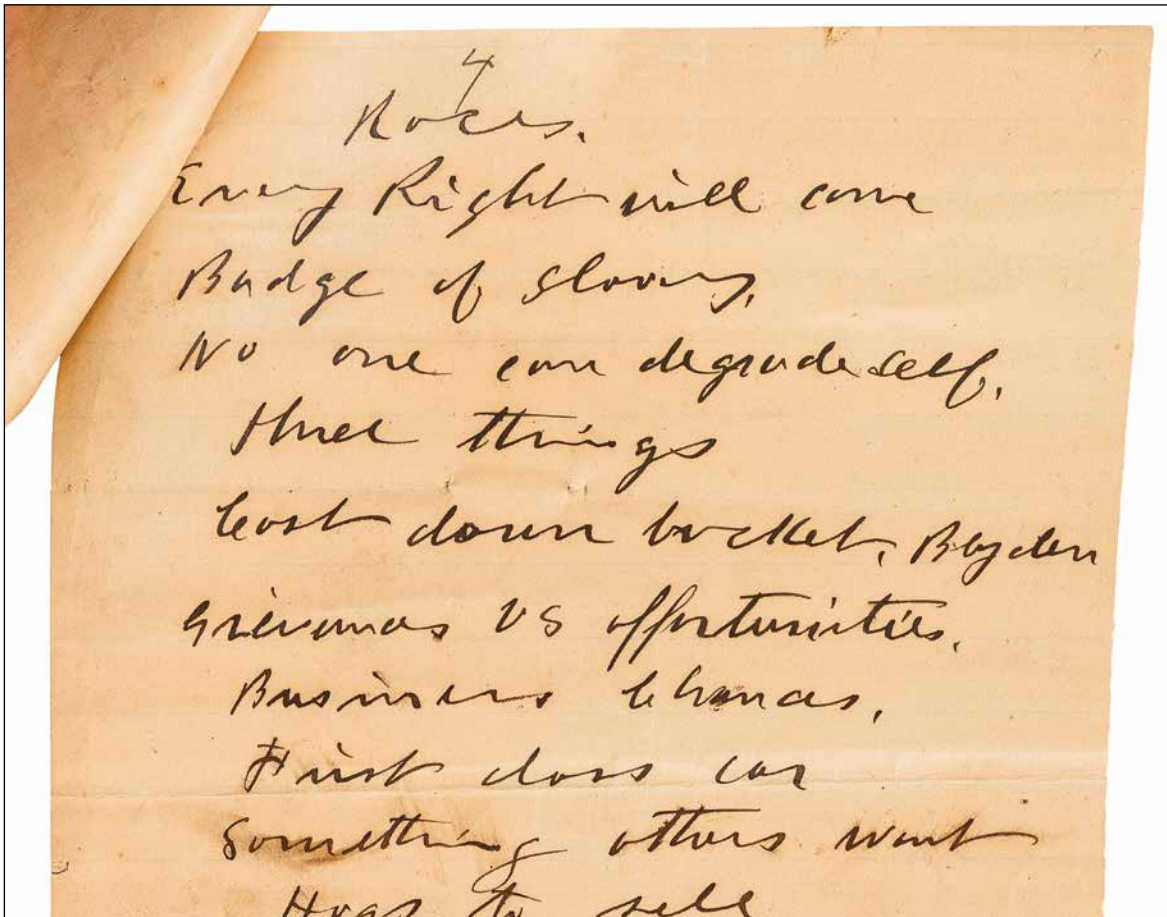 4
Races.
Every Right will come
Badge of slavery.
No one can degrade self.
Three things
Cast down bucket,
Grievances vs opportunities.
Business Chances.
First class car
Something others want
Hogs to sell